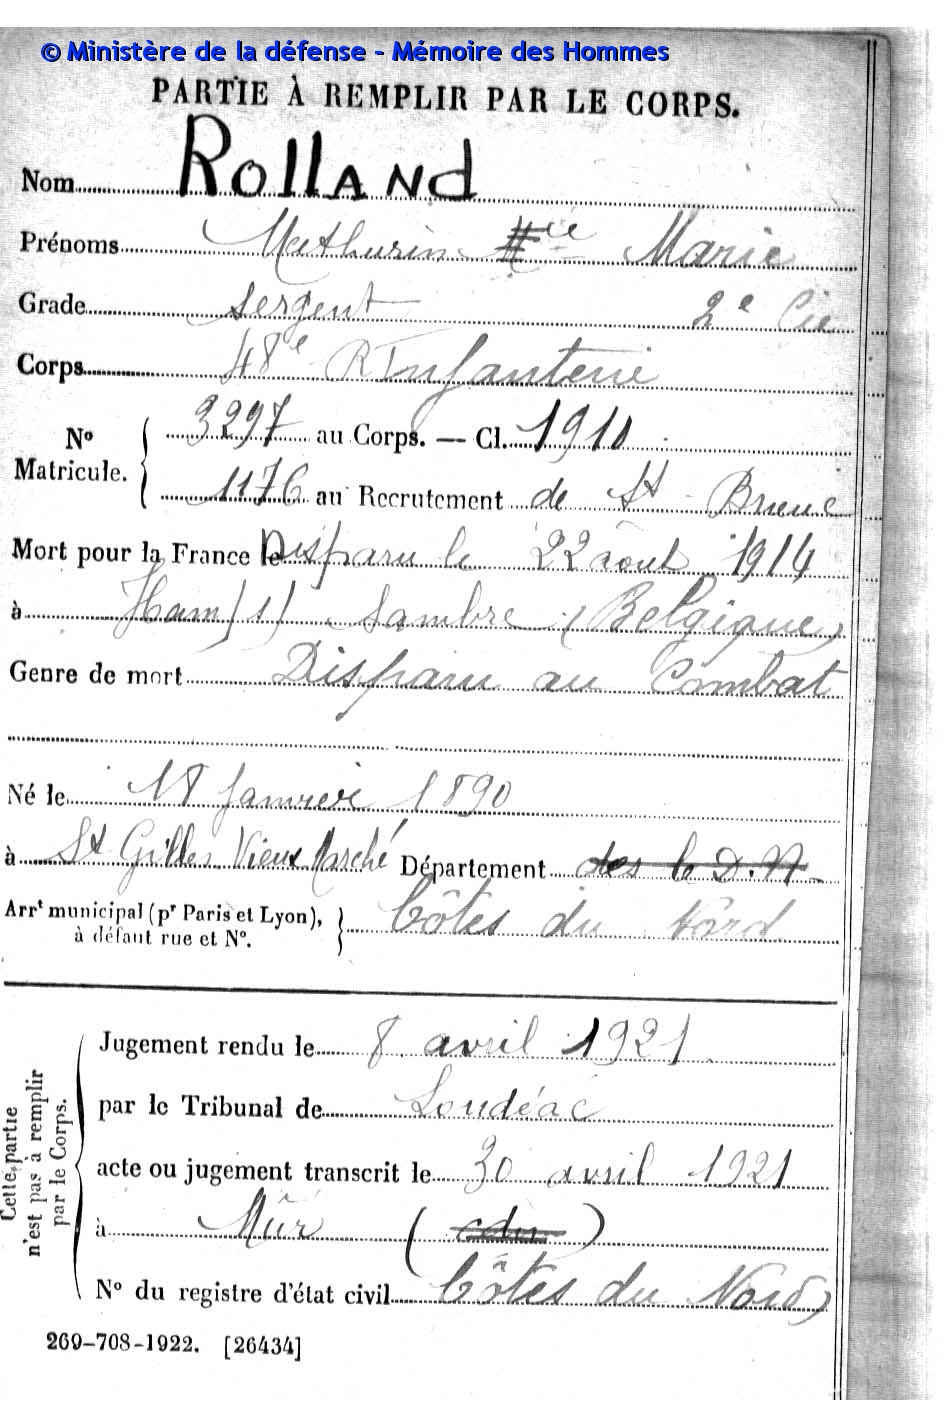 © Ministère de la défense - Mémoire des Hommes
PARTIE À REMPLIR PAR LE CORPS.
Nom ROLLAND
Prénoms Mathurin Marie
Grade Sergent 2e Cie
Corps 48e R Infanterie
No Matricule. 3297 au Corps. — Cl. 1910
1176 au Recrutement de St Brieuc
Mort pour la France le Disparu le 22 août 1914
à Ham s/ Sambre (Belgique)
Genre de mort Disparu au Combat
Né le 18 Janvier 1890
à St Gilles Vieux Marché Département
Arrt municipal (pr Paris et Lyon), à défaut rue et No. Côtes du Nord
Cette partie n'est pas à remplir par le Corps.
Jugement rendu le 8 avril 1921
par le Tribunal de Loudéac
acte ou jugement transcrit le 30 avril 1921
à Mûr (
)
No du registre d'état civil Côtes du Nord)
269-708-1922. [26434]